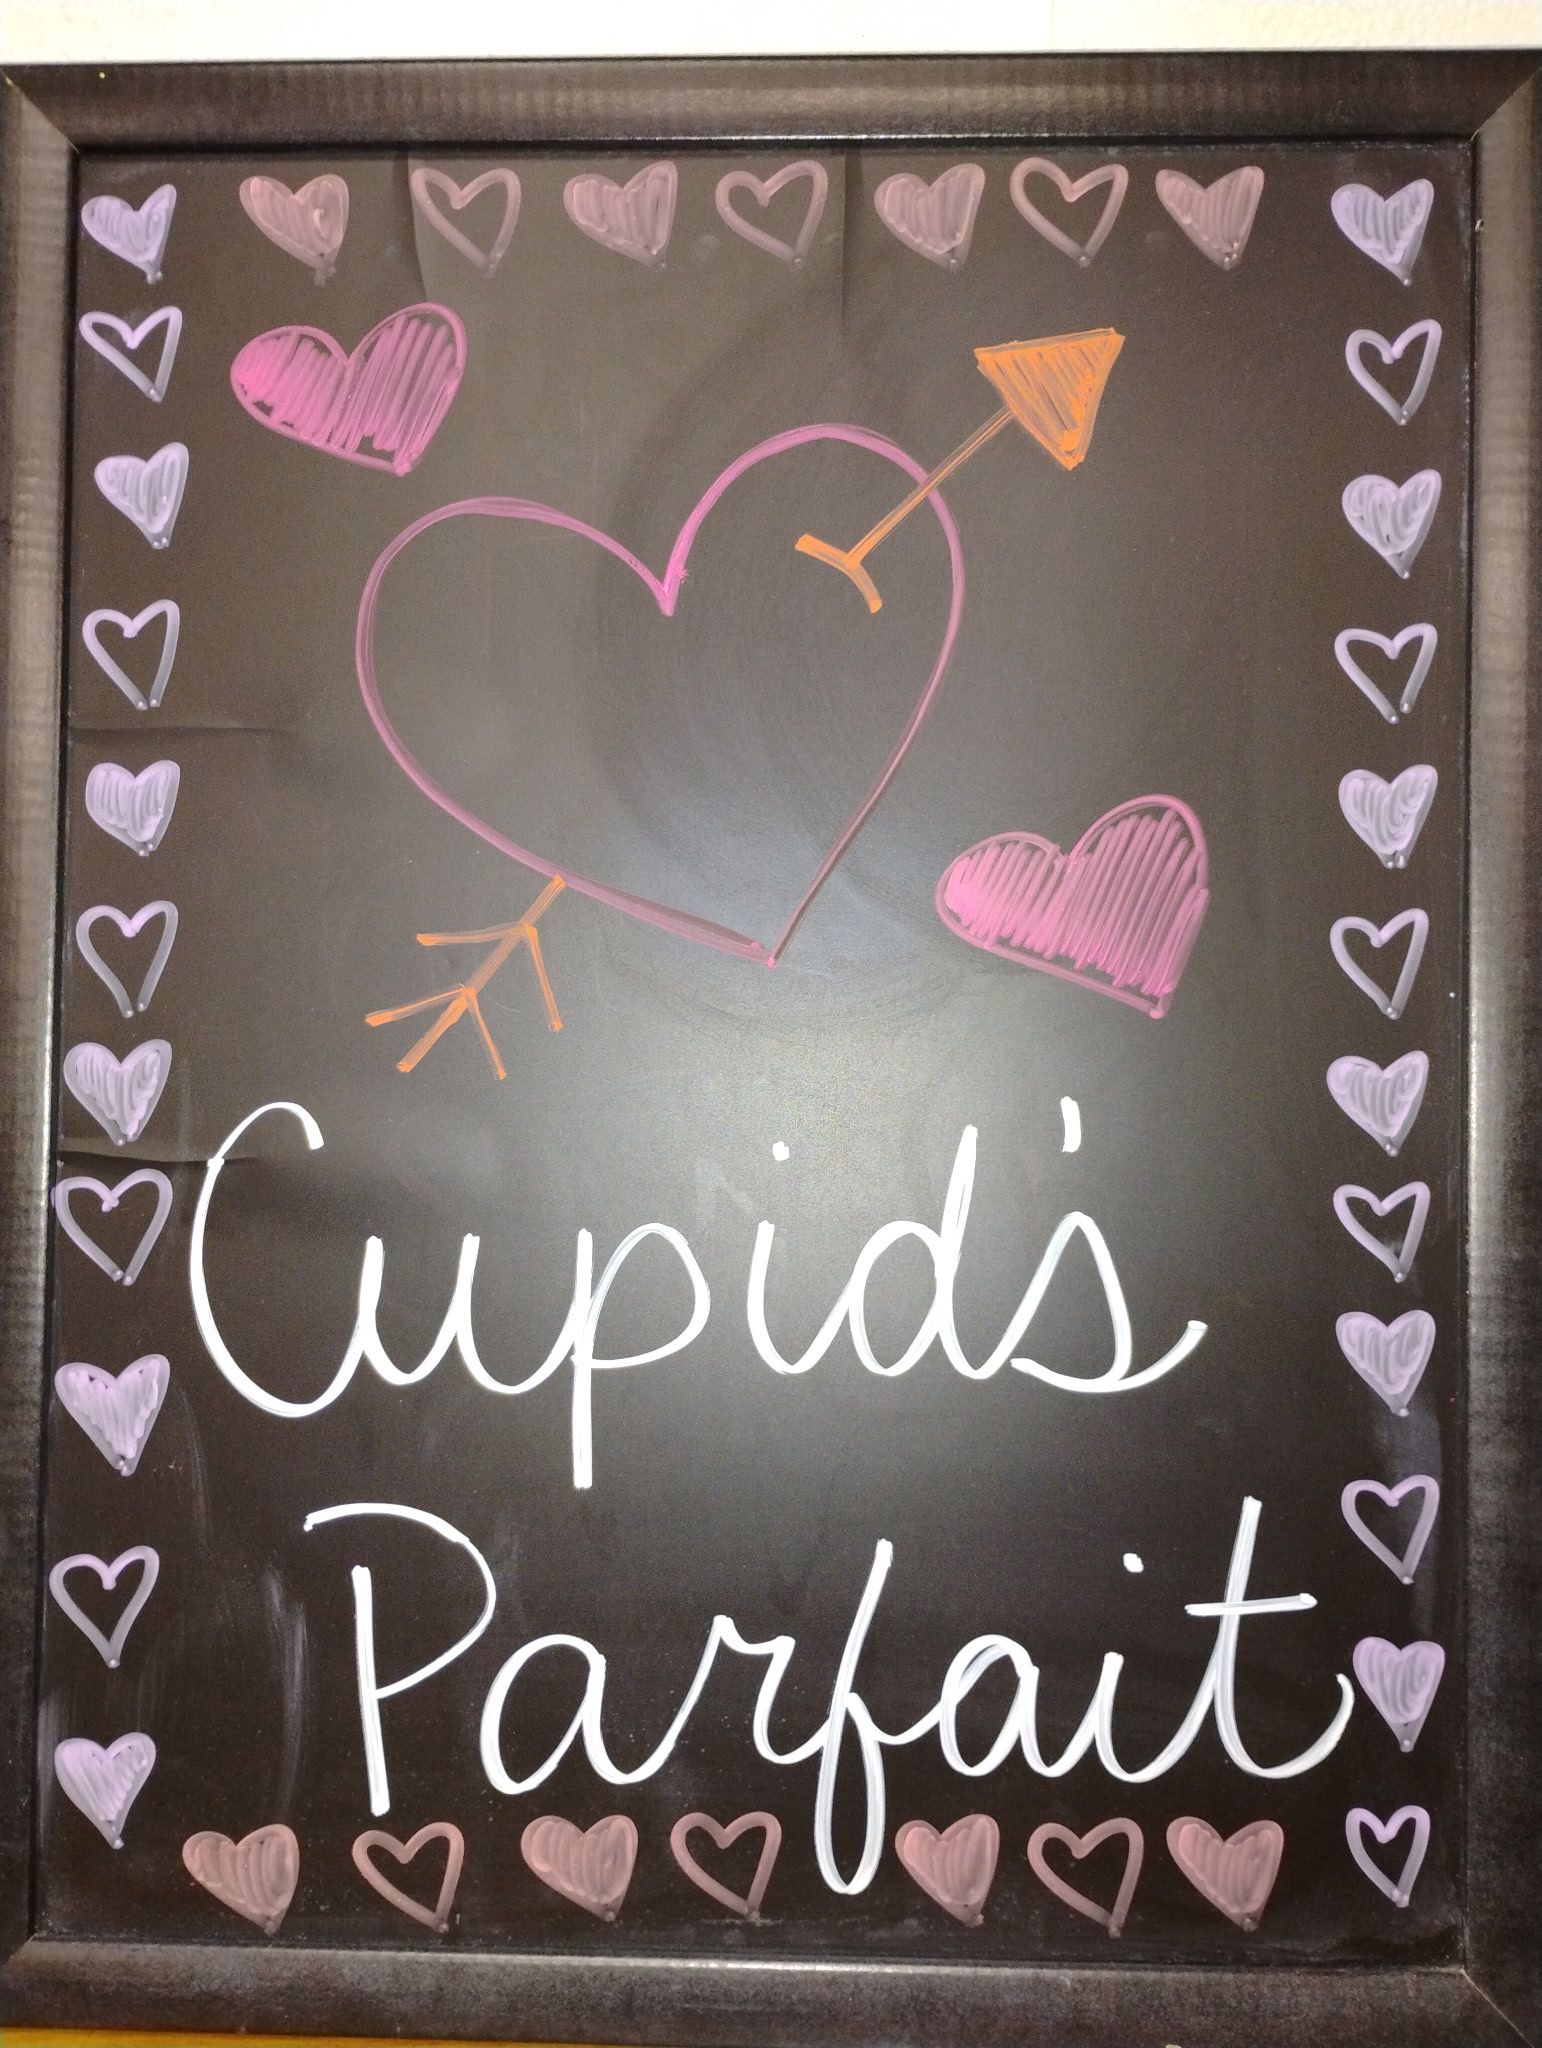 Cupid's
Parfait